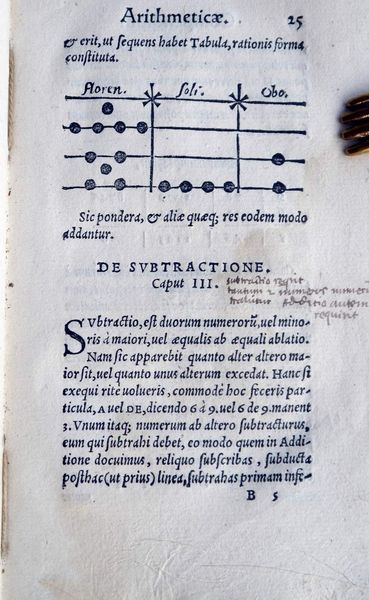 Arithmeticæ. 25
& erit, ut sequens habet Tabula, rationis forma
constituta.
Floren. Soli. Obo.
Sic pondera, & aliæ quæq; res eodem modo
addantur.
DE SVBTRACTIONE.
Caput III.
subtractio
numeros
additio autem
requirit
SVbtractio, est duorum numerorũ, uel mino-
ris à maiori, uel æqualis ab æquali ablatio.
Nam sic apparebit quanto alter altero ma-
ior sit, uel quanto unus alterum excedat. Hanc si
exequi rite uolueris, commodè hoc feceris par-
ticula, A uel DE, dicendo 6 à 9. uel 6 de 9. manent
3. Vnum itaq; numerum ab altero subtracturus,
eum qui subtrahi debet, eo modo quem in Addi-
tione docuimus, reliquo subscribas, subducta
posthac (ut prius) linea, subtrahas primam infe-
B 5